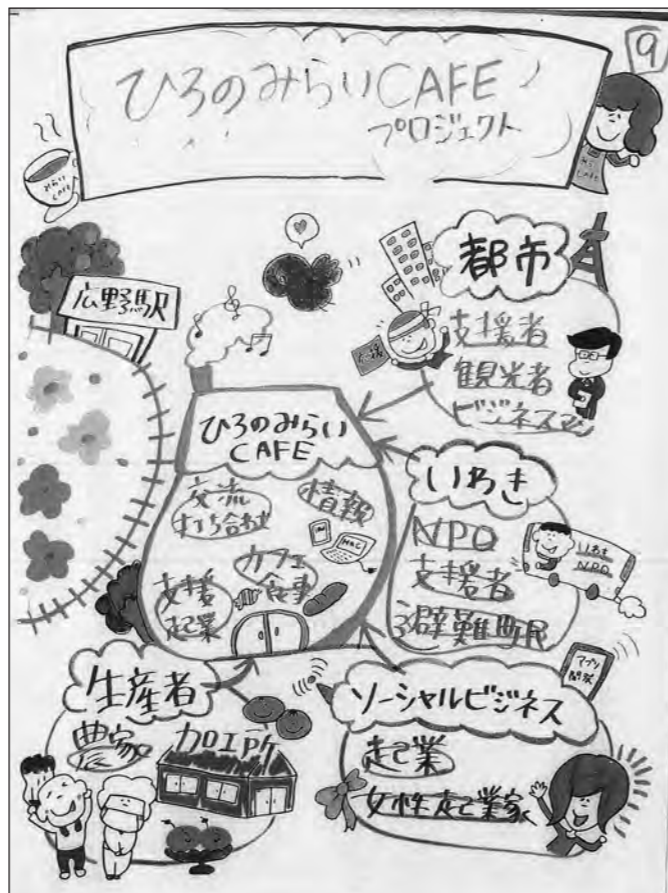 9
ひろのみらいCAFE
プロジェクト
みらい
CAFE
広野駅
都市
支援者
観光者
ビジネスマン
ひろのみらい
CAFE
交流
打ち合わせ
情報
MAC
カフェ
食事
支援
起業
いわき
NPO
支援者
避難町民
いわき
NPO
アプリ
開発
生産者
農家
加工所
ソーシャルビジネス
起業
女性起業家